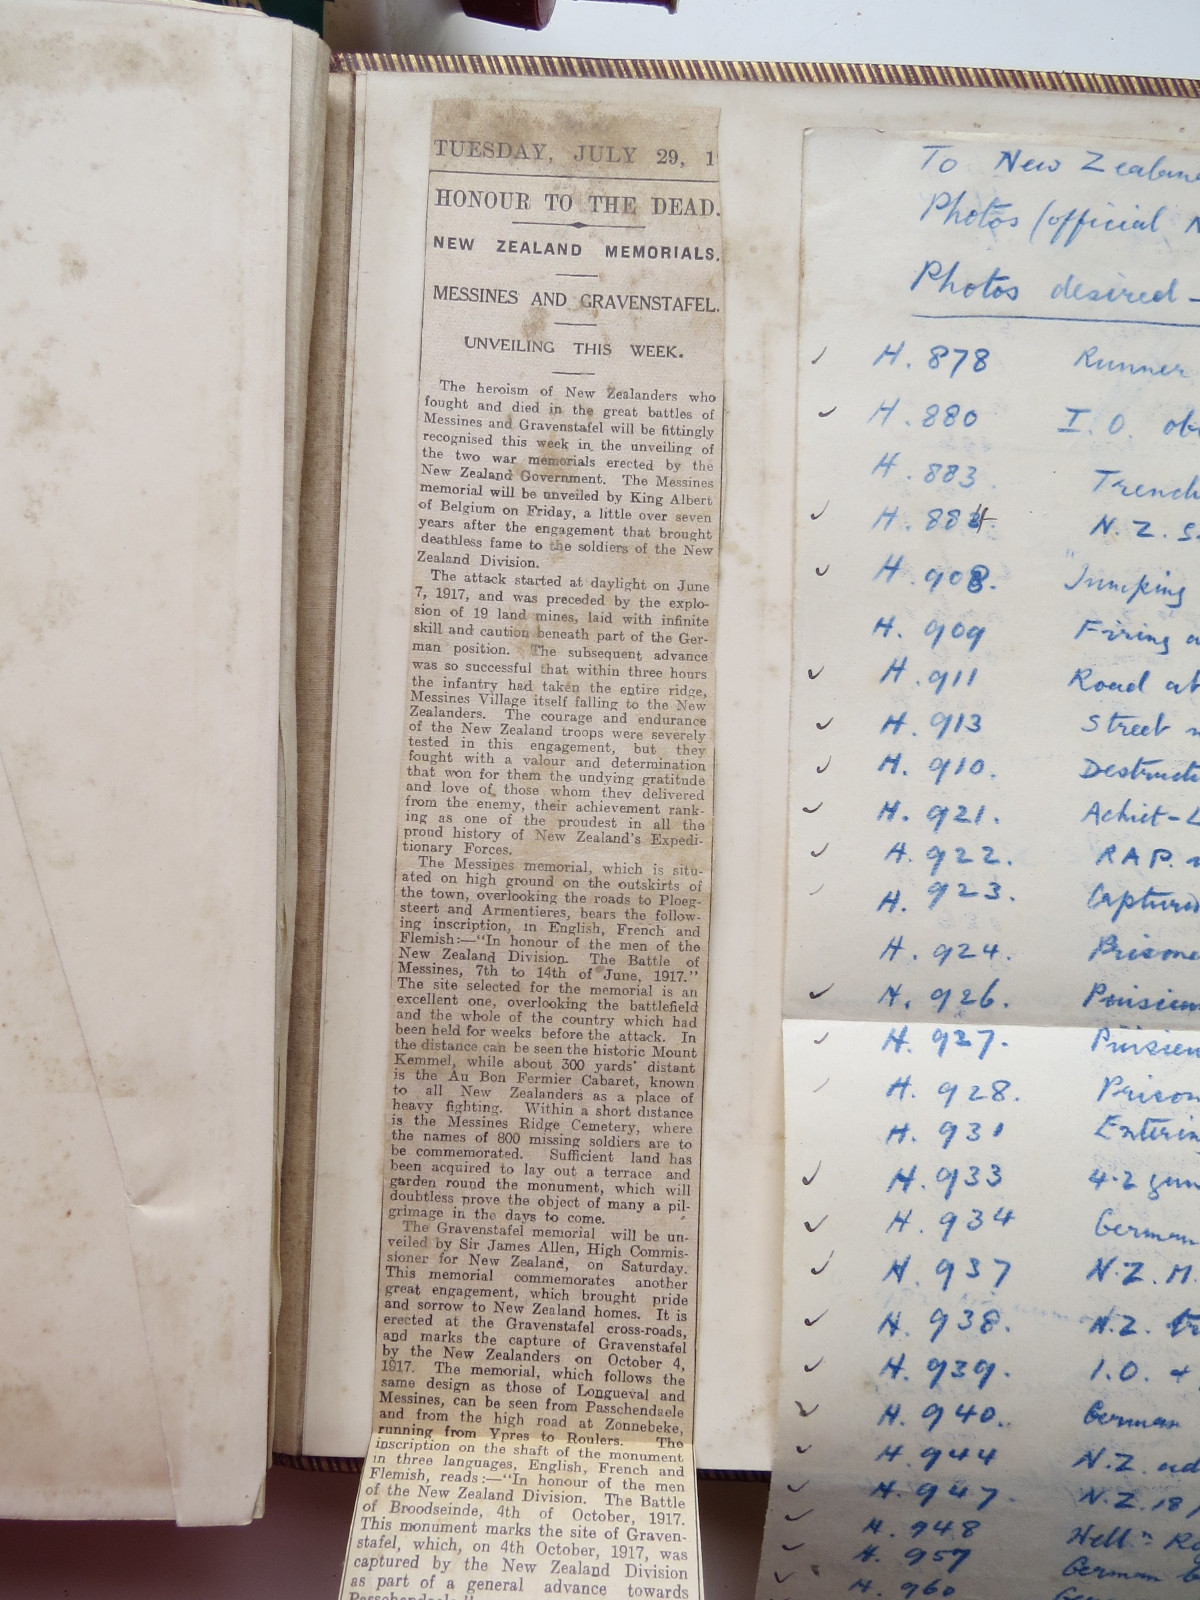 TUESDAY, JULY 29, 1
HONOUR TO THE DEAD.
NEW ZEALAND MEMORIALS.
MESSINES AND GRAVENSTAFEL.
UNVEILING THIS WEEK.
The heroism of New Zealanders who
fought and died in the great battles of
Messines and Gravenstafel will be fittingly
recognised this week in the unveiling of
the two war memorials erected by the
New Zealand Government. The Messines
memorial will be unveiled by King Albert
of Belgium on Friday, a little over seven
years after the engagement that brought
deathless fame to the soldiers of the New
Zealand Division.
The attack started at daylight on June
7, 1917, and was preceded by the explo-
sion of 19 land mines, laid with infinite
skill and caution beneath part of the Ger-
man position. The subsequent advance
was so successful that within three hours
the infantry had taken the entire ridge,
Messines Village itself falling to the New
Zealanders. The courage and endurance
of the New Zealand troops were severely
tested in this engagement, but they
fought with a valour and determination
that won for them the undying gratitude
and love of those whom they delivered
from the enemy, their achievement rank-
ing as one of the proudest in all the
proud history of New Zealand's Expedi-
tionary Forces.
The Messines memorial, which is situ-
ated on high ground on the outskirts of
the town, overlooking the roads to Ploeg-
steert and Armentieres, bears the follow-
ing inscription, in English, French and
Flemish:—"In honour of the men of the
New Zealand Division. The Battle of
Messines, 7th to 14th of June, 1917."
The site selected for the memorial is an
excellent one, overlooking the battlefield
and the whole of the country which had
been held for weeks before the attack. In
the distance can be seen the historic Mount
Kemmel, while about 300 yards' distant
is the Au Bon Fermier Cabaret, known
to all New Zealanders as a place of
heavy fighting. Within a short distance
is the Messines Ridge Cemetery, where
the names of 800 missing soldiers are to
be commemorated. Sufficient land has
been acquired to lay out a terrace and
garden round the monument, which will
doubtless prove the object of many a pil-
grimage in the days to come.
The Gravenstafel memorial will be un-
veiled by Sir James Allen, High Commis-
sioner for New Zealand, on Saturday.
This memorial commemorates another
great engagement, which brought pride
and sorrow to New Zealand homes. It is
erected at the Gravenstafel cross-roads,
and marks the capture of Gravenstafel
by the New Zealanders on October 4,
1917. The memorial, which follows the
same design as those of Longueval and
Messines, can be seen from Passchendaele
and from the high road at Zonnebeke,
running from Ypres to Roulers. The
inscription on the shaft of the monument
in three languages, English, French and
Flemish, reads:—"In honour of the men
of the New Zealand Division. The Battle
of Broodseinde, 4th of October, 1917.
This monument marks the site of Graven-
stafel, which, on 4th October, 1917, was
captured by the New Zealand Division
as part of a general advance towards
Passchendaele."
To New Zealand
Photos (official N
Photos desired -
H. 878 Runner
H. 880 I.O. ob
H. 883 Trench
H. 884 N.Z. S
H. 908. Jumping
H. 909 Firing a
H. 911 Road at
H. 913 Street
H. 910. Destructi
H. 921. Achiet-L
H. 922. RAP.
H. 923. Captured
H. 924. Prisone
H. 926. Puisieu
H. 927. Puisieu
H. 928. Prison
H. 931 Enterin
H. 933 4.2 gun
H. 934 German
H. 937 N.Z. M.
H. 938. N.Z. tr
H. 939. I.O. +
H. 940. German
H. 944 N.Z. ad
H. 947. N.Z. 18
H. 948 Hell
H. 957 German
H. 960